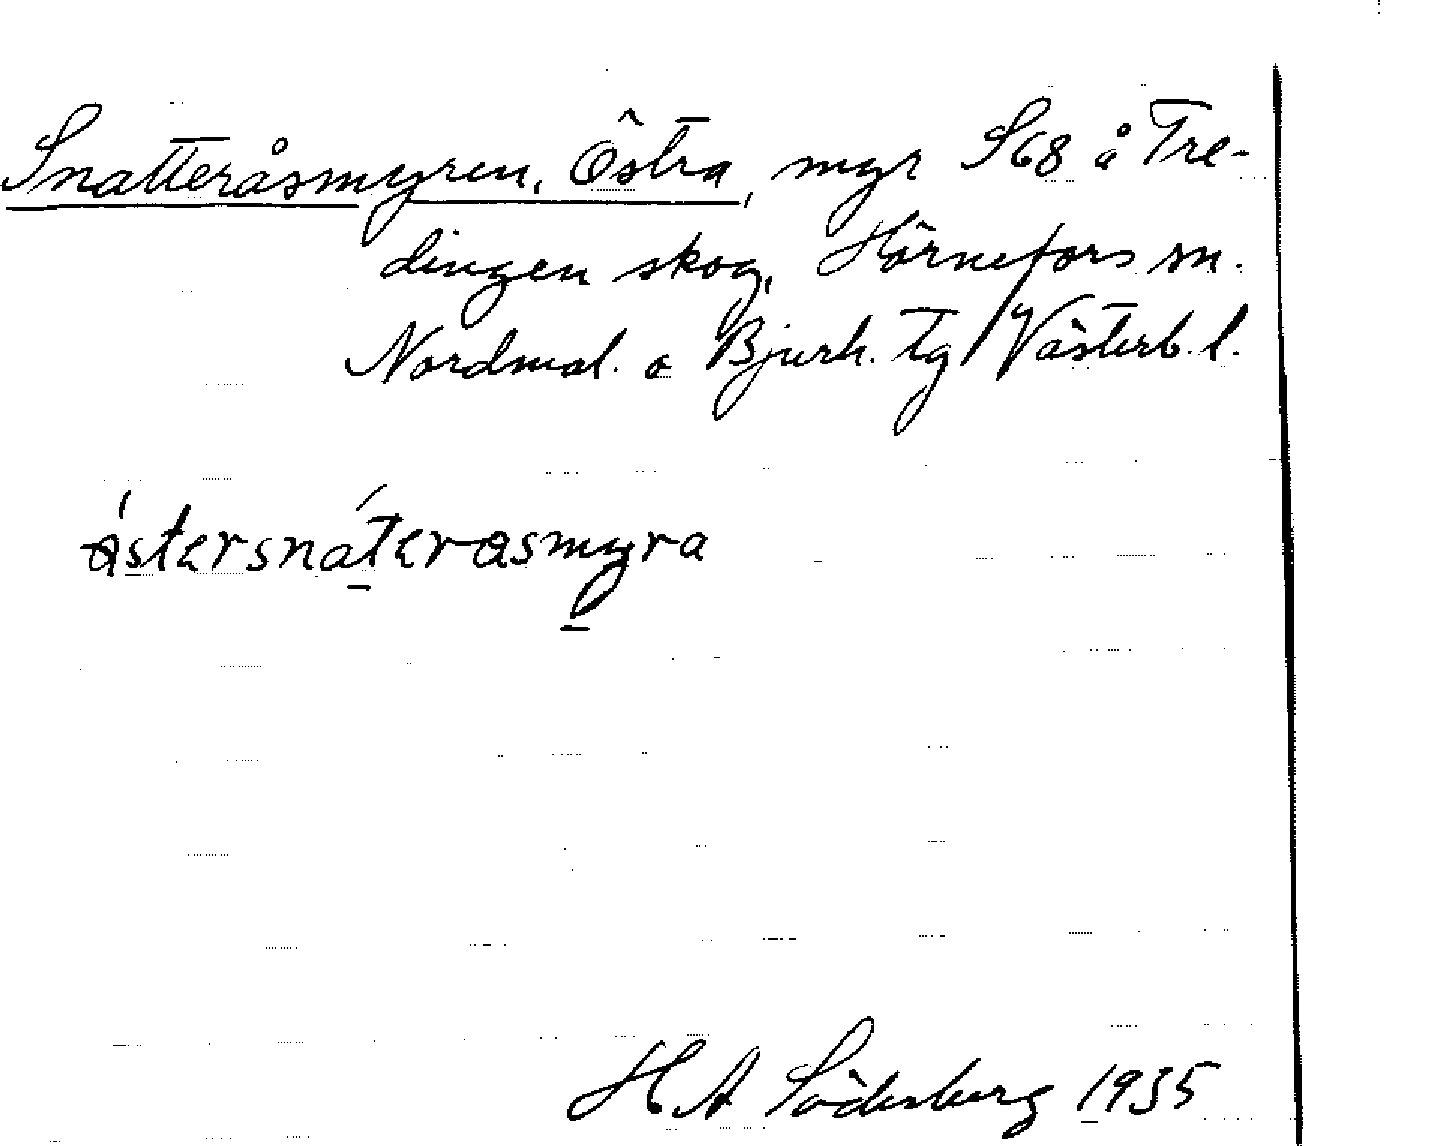 Snatteråsmyren, Östra, myr S68 å Tre-
dingen skog, Hörnefors sn.
Nordmal. o Bjurh. tg Västerb. l.
östersnáterasmyra
H A Söderberg 1935